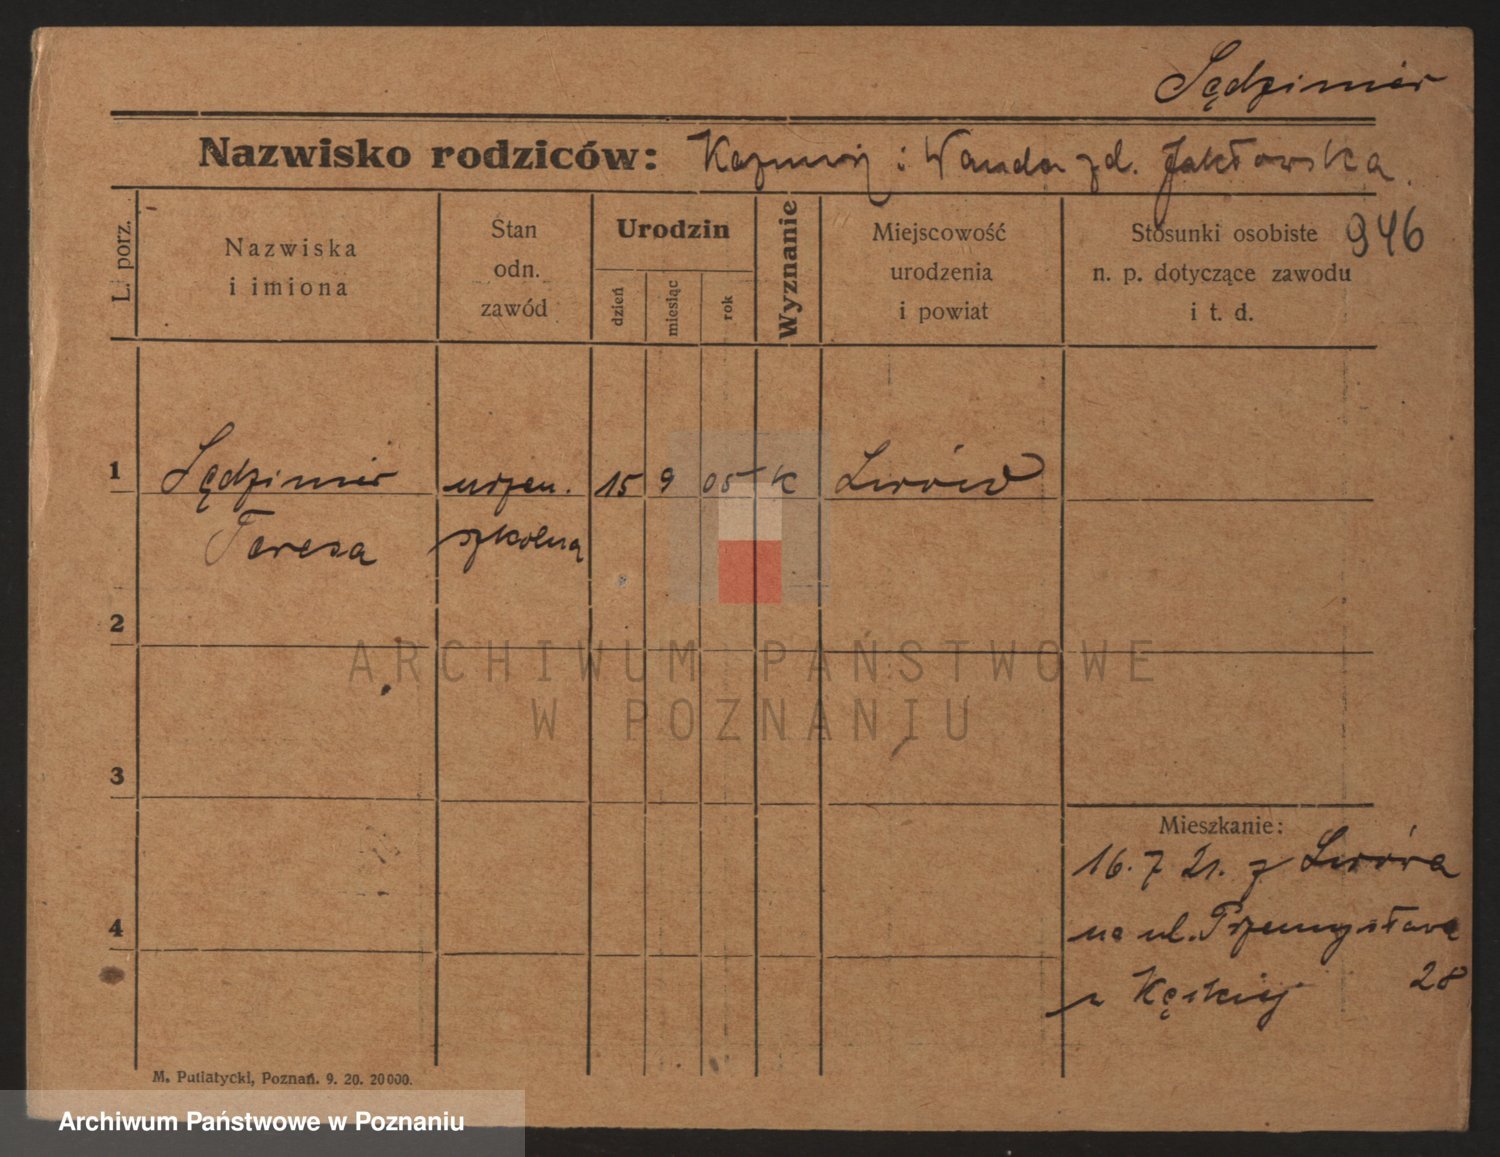 Sędzimir
Nazwisko rodziców: Kazimierz i Wanda zd. Jakłowska.
L. porz.
Nazwiska
i imiona
Stan
odn.
zawód
Urodzin
dzień
miesiąc
rok
Wyznanie
Miejscowość
urodzenia
i powiat
Stosunki osobiste
n. p. dotyczące zawodu
i t. d.
946
1 Sędzimir uczen. 15 9 05 K Lwów
Teresa szkolna
2
3
4
ARCHIWUM PAŃSTWOWE
W POZNANIU
Mieszkanie:
16. 7 21. z Lwowa
na ul. Przemysława
28
u
M. Putiatycki, Poznań. 9. 20. 20000.
Archiwum Państwowe w Poznaniu